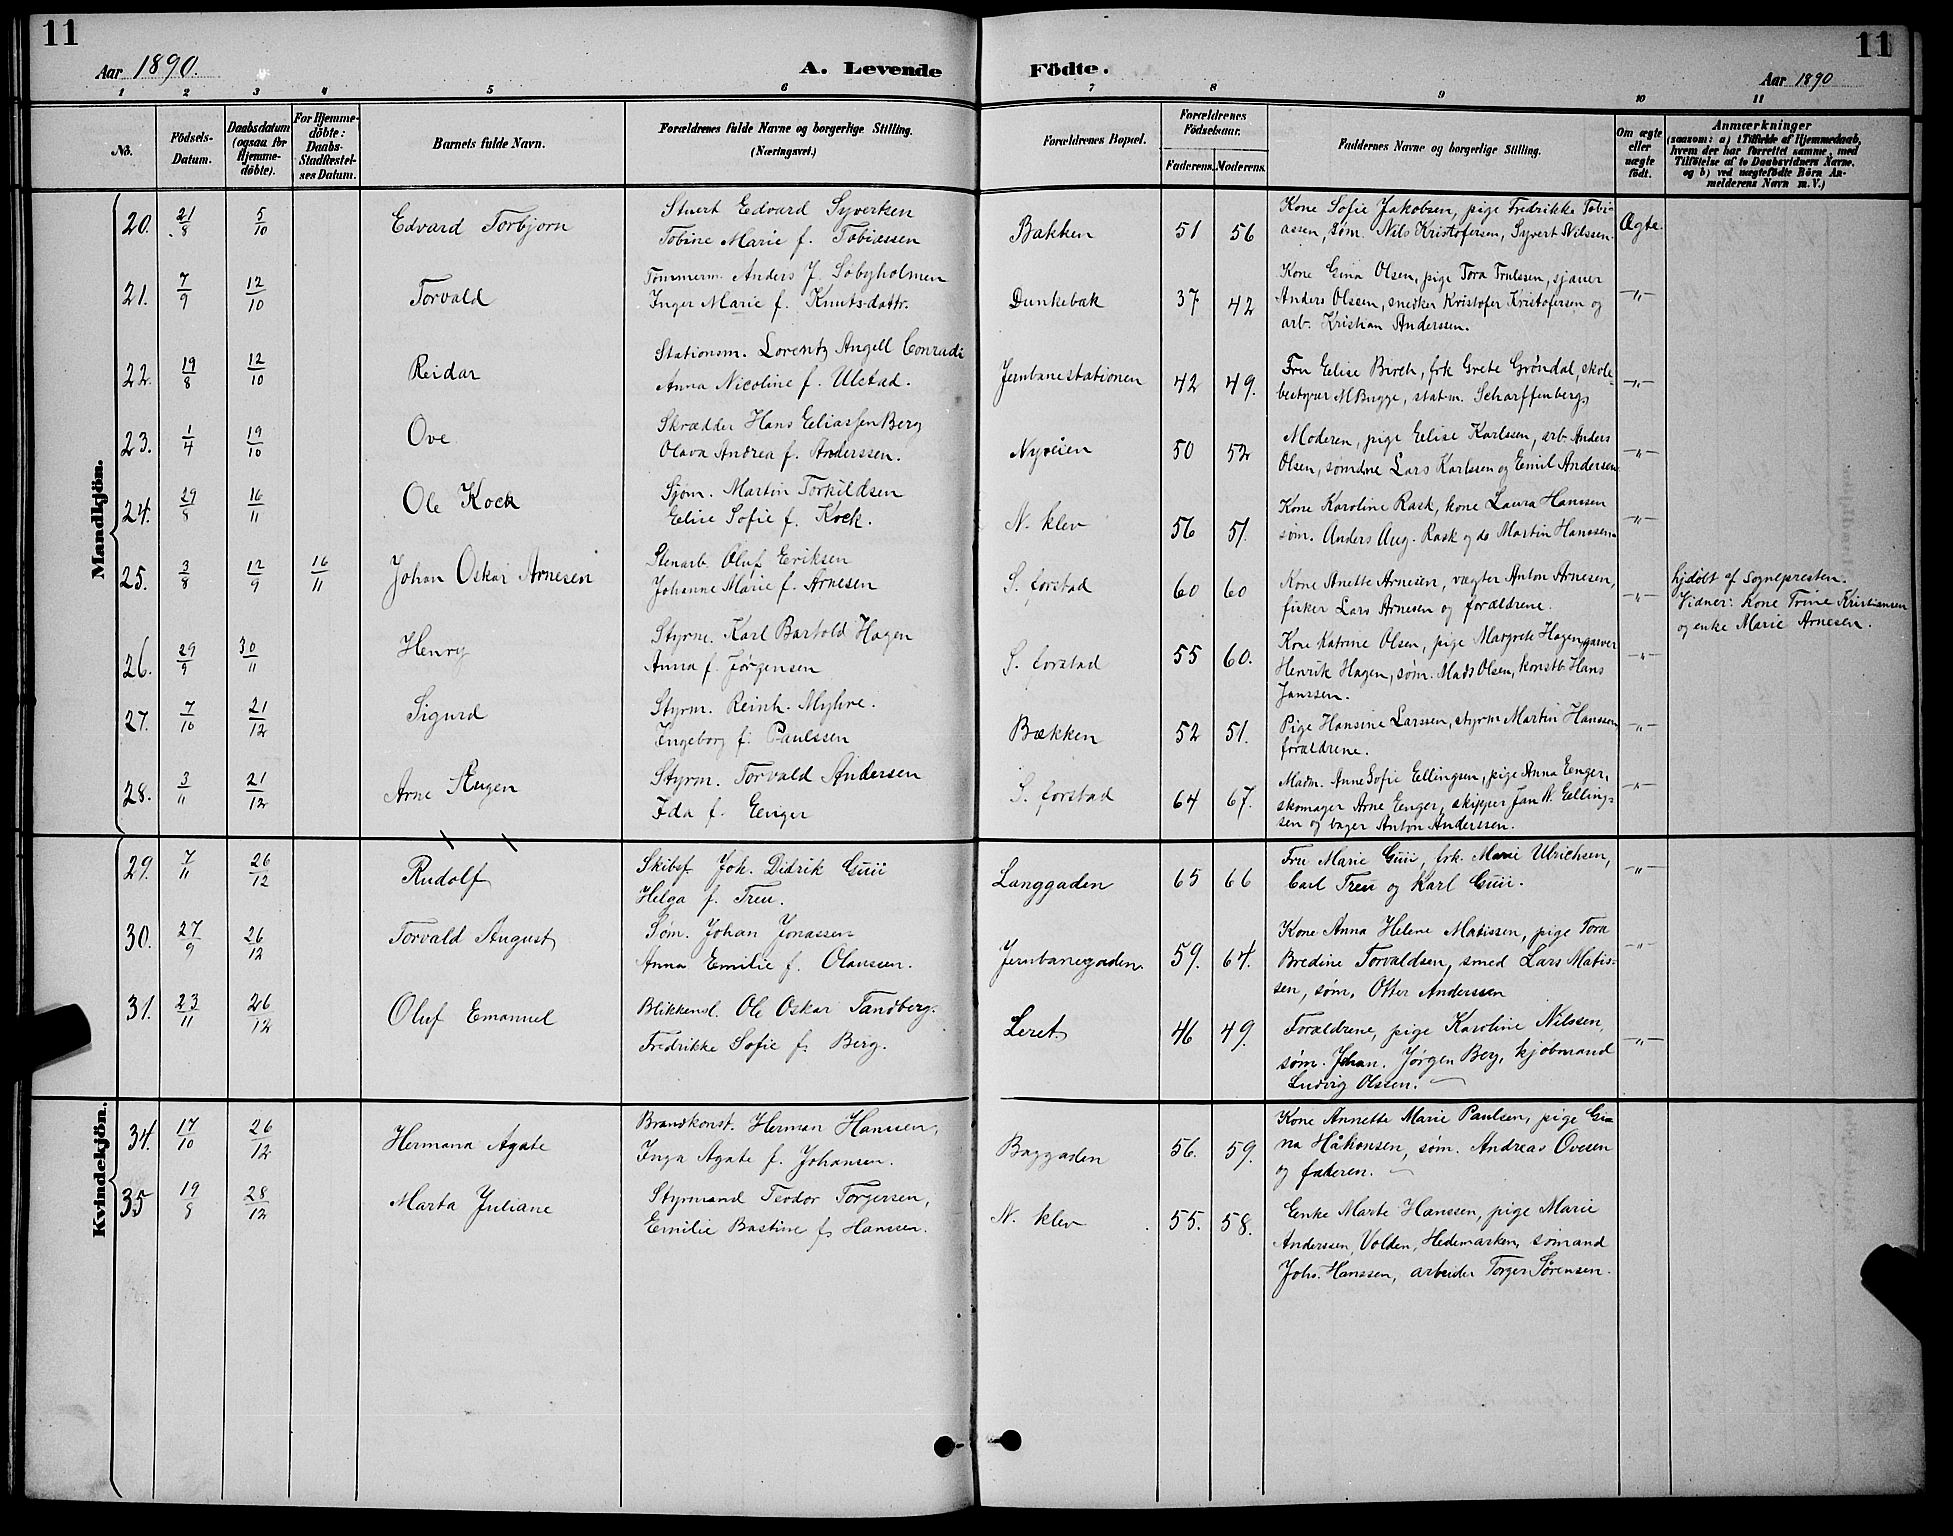 11
11
Aar 1890.
A. Levende
Födte.
Aar 1890
1 2 3 4 5 6 7 8 9 10 11
No.
Födsels-Datum.
Daabsdatum (ogsaa for Hjemme-döbte).
For Hjemme-döbte: Daabs-Stadfæstel-ses Datum.
Barnets fulde Navn.
Forældrenes fulde Navne og borgerlige Stilling.
(Næringsvei.)
Forældrenes Bopæl.
Forældrenes Födselsaar.
Faderens. Moderens.
Faddernes Navne og borgerlige Stilling.
Om ægte eller uægte födt.
Anmærkninger
(saasom: a) i Tilfælde af Hjemmedaab,
hvem der har forrettet samme, med
Tilföielse af to Daabsvidners Navne,
og b) ved uægtefödte Börn An-
melderens Navn m. V.)
Mandkjön.
20. 21/8 5/10 Edvard Torbjorn
Stuert Edvard Syvertsen
Tobine Marie f. Tobiassen
Bakken 51 56
Kone Sofie Jakobsen, pige Fredrikke Tobi-
assen, søm. Nils Kristofersen, Syvert Nilssen.
Ægte.
21. 7/9 12/10 Torvald
Tømmerm. Anders J. Søbyholmen
Inger Marie f. Knuts-dattr.
Dunkebak 37 42
Kone Gina Olsen, pige Tora Trulssen, sjauer
Anders Olsen, snedker Kristofer Kristofersen og
arb. Kristian Anderssen.
-"-
22. 19/8 12/10 Reidar
Stationsm. Lorentz Angell Conradi
Anna Nicoline f. Ulstad.
Jernbanestationen 42 49.
Fru Elise Birch, frk Grete Grøndal, skole-
bestyrer M Bugge, stat-m. Scharffenberg
-"-
23. 1/4 19/10 Ove
Skrædder Hans Eliassen Berg
Olava Andrea f. Anderssen.
Nyveien 50 52
Moderen, pige Elise Karlssen, arb. Anders
Olsen, sømdne Lars Karlssen og Emil Andersen
-"-
24. 29/8 16/11 Ole Kock
Sjøm. Martin Torkildsen
Elise Sofie f. Kock.
N. klev 56 51.
Kone Karoline Rask, kone Laura Hanssen
søm. Anders Aug. Rask og do Martin Hanssen
-"-
25. 3/8 12/9 16/11 Johan Oskar Arnesen
Stenarb. Oluf Eriksen
Johanne Marie f. Arnesen
S. forstad 60 60
Kone Anette Arnesen, vægter Anton Arnesen,
fisker Lars Arnesen og forældrene.
-"-
hjdøbt af Sognepresten.
Vidner: Kone Trine Kristiansen
og enke Marie Arnesen.
26. 29/9 30/11 Henry
Styrm. Karl Bartold Hagen
Anna f. Jørgensen
S. forstad 55 60.
Kone Katrine Olsen, pige Margrete Hagen, garver
Henrik Hagen, søm. Mads Olsen, konstb. Hans
Janssen.
-"-
27. 7/10 21/12 Sigurd
Styrm. Reinh. Myhre.
Ingeborg f. Paulssen
Bækken 52 51.
Pige Hansine Larssen, styrm Martin Hanssen
forældrene.
-"-
28. 3/11 21/12 Arne Eugen
Styrm. Torvald Andersen
Ida f. Enger
S. forstad 64 67.
Madm. Anne Sofie Ellingsen, pige Anna Enger,
skomager Arne Enger, skipper Jan A. Elling-
sen og bager Anton Anderssen.
-"-
29. 7/11 26/12 Rudolf
Skibsf Joh. Didrik Güii
Helga f. Treu.
Langgaden 65 66
Fru Marie Güii, frk. Marie Ulrichsen,
Carl Treu og Karl Güii.
-"-
30. 27/9 26/12 Torvald August
Søm. Johan Jonassen
Anna Emilie f. Olaussen.
Jernbanegaden 59. 64.
Kone Anna Helene Matissen, pige Tora
Bredine Torvaldsen, smed Lars Matis-
sen, søm. Otter Anderssen
-"-
31. 23/11 26/12 Oluf Emanuel
Blikkensl. Ole Oskar Tandberg.
Fredrikke Sofie f. Berg.
Leret 46 49.
Forældrene, pige Karoline Nilssen,
søm. Johan Jørgen Berg, kjøbmand
Ludvig Olssen.
-"-
Kvindekjön.
34. 17/10 26/12 Hermana Agate
Brandkonst. Herman Hanssen,
Inga Agate f. Johansen.
Baggaden 56. 59.
Kone Annette Marie Paulsen, pige Gi-
na Håkonsen, søm. Andreas Ovesen
og faderen.
35 19/8 28/12 Marta Juliane
Styrmand Teodor Torgersen,
Emilie Bastine f. Hanssen.
N. klev 55. 58.
Enke Marte Hanssen, pige Marie
Anderssen, Volden, Hedemarken, sømand
Johs. Hanssen, arbeider Torger Sørensen.